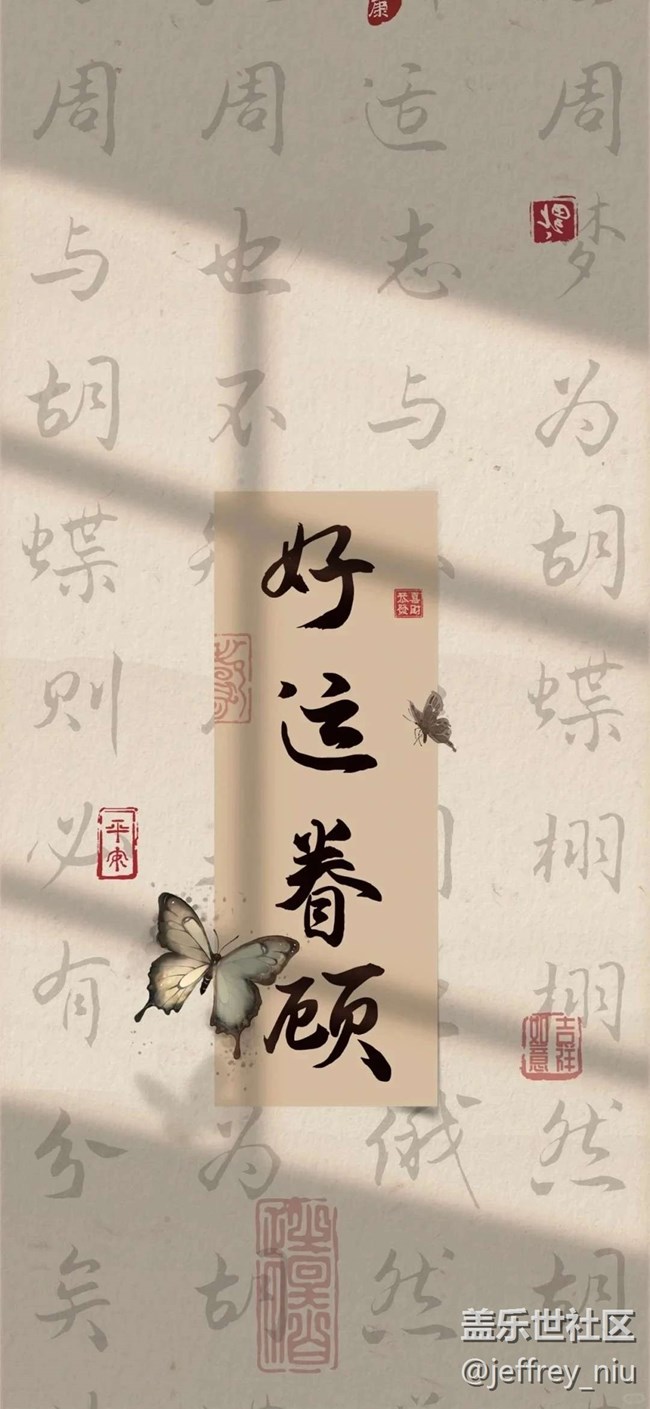 好运眷顾
周梦为胡蝶栩栩然胡
适志与
俄然
周也不
为胡
周与胡蝶则必有分矣
康
恭喜發财
平安
吉祥如意
盖乐世社区
@jeffrey_niu